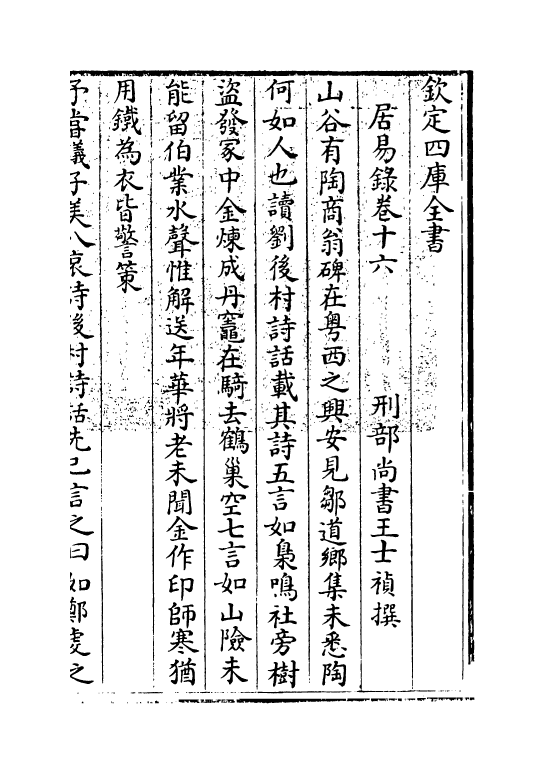 欽定四庫全書
居易錄卷十六　刑部尚書王士禎撰
山谷有陶商翁碑在粤西之興安見鄒道鄉集未悉陶
何如人也讀劉後村詩話載其詩五言如梟鳴社旁樹
盜發冢中金煉成丹竈在騎去鶴巢空七言如山險未
能留伯業水聲惟解送年華將老未聞金作印師寒猶
用鐵為衣皆警策
予嘗議子美八哀詩後村詩話先已言之曰如鄭䖍之